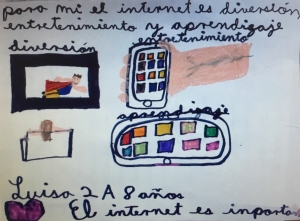 para mi el internet es diversión
entretenimiento y aprendizaje
diversión
entretenimiento
aprendizaje
Luisa 2 A 8 años
El internet es inporta